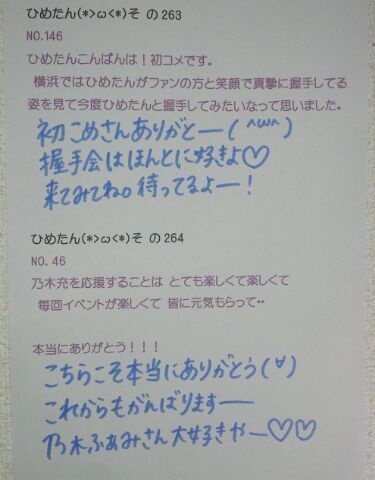 ひめたん(*>ω<*)そ の263
NO.146
ひめたんこんばんは！初コメです。
横浜ではひめたんがファンの方と笑顔で真摯に握手してる
姿を見て今度ひめたんと握手してみたいなって思いました。
初こめさんありがとー(^ω^)
握手会はほんとに好きよ♡
来てみてね。待ってるよー！
ひめたん(*>ω<*)そ の264
NO.46
乃木充を応援することは とても楽しくて楽しくて
毎回イベントが楽しくて 皆に元気もらって・・
本当にありがとう！！！
こちらこそ本当にありがとう(∀)
これからもがんばりますー
乃木ふぁみさん大好きやー♡♡